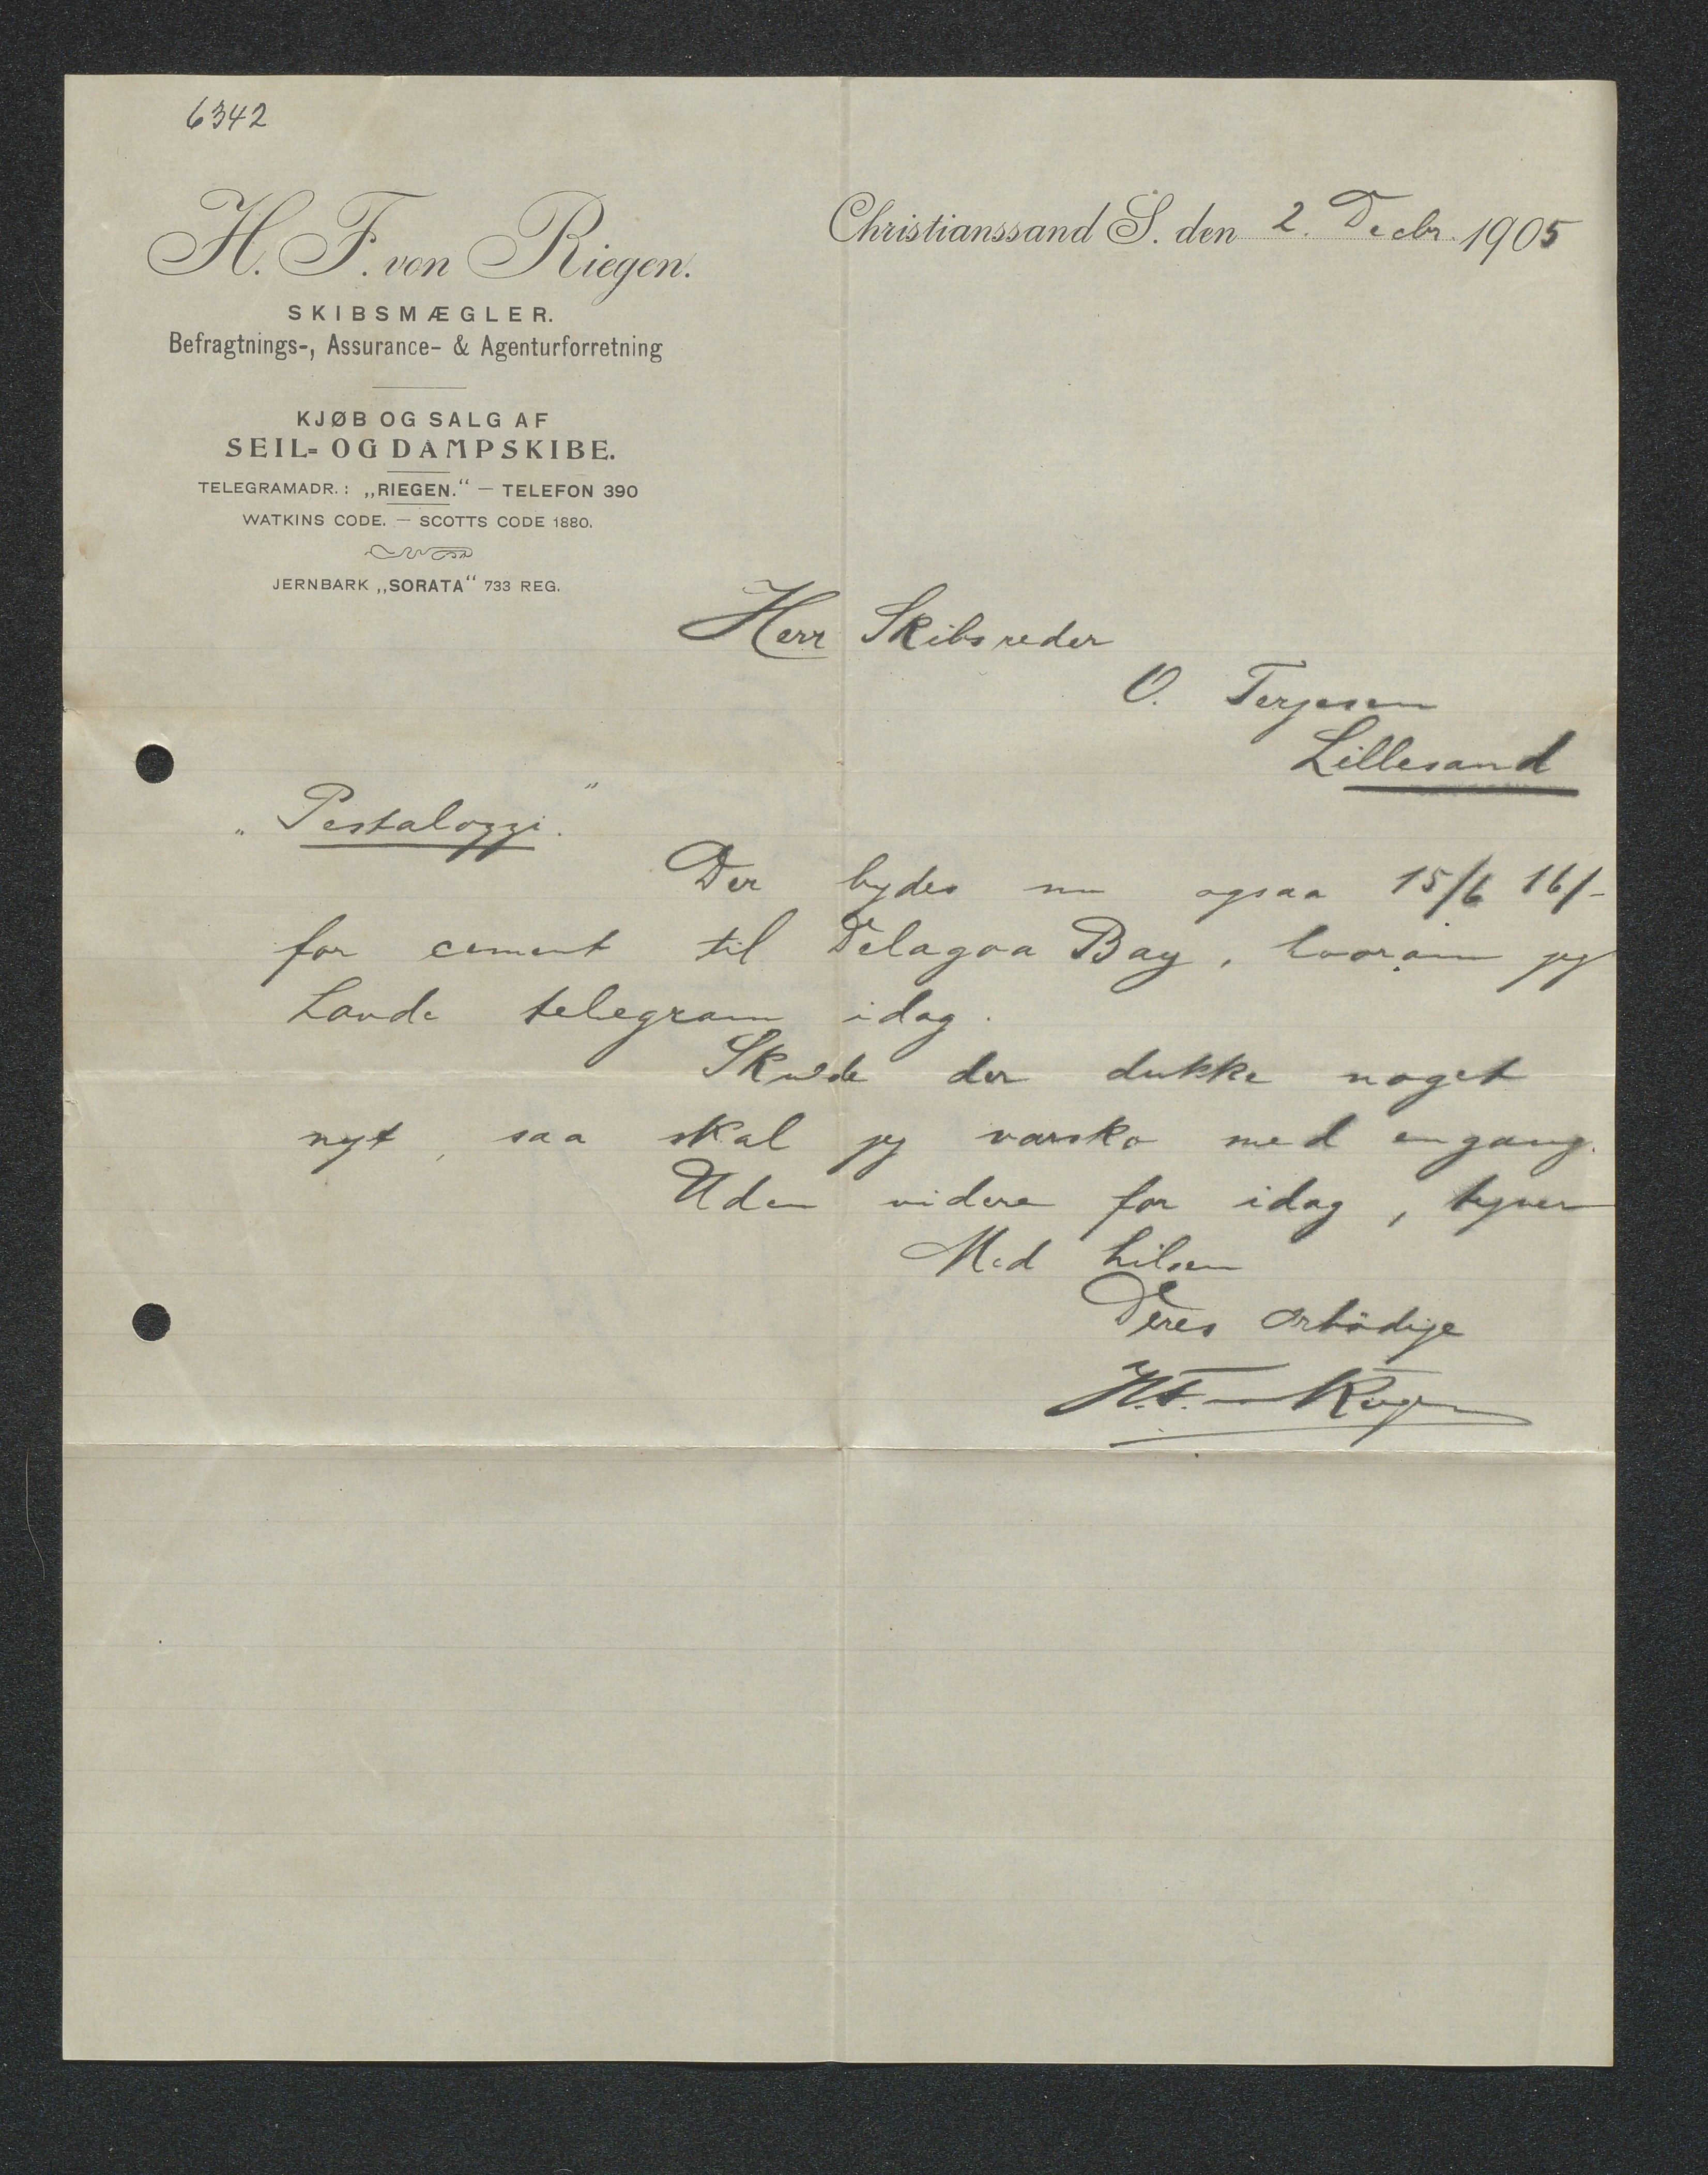 6342
H. F. von Riegen.
SKIBSMÆGLER.
Befragtnings-, Assurance- & Agenturforretning
KJØB OG SALG AF
SEIL- OG DAMPSKIBE.
TELEGRAMADR.: „RIEGEN.“ — TELEFON 390
WATKINS CODE. — SCOTTS CODE 1880.
JERNBARK „SORATA“ 733 REG.
Christianssand S. den 2. Decbr. 1905
Herr Skibsreder
O. Terjesen
Lillesand
„Pestalozzi.“
Der bydes nu ogsaa 15/6 16/-
for cement til Delagoa Bay, hvorom jeg
havde telegram idag.
Skulde der dukke noget
nyt, saa skal jeg varsko med engang.
Uden videre for idag, tegner
Med hilsen
Deres ærbödige
H.F. von Riegen